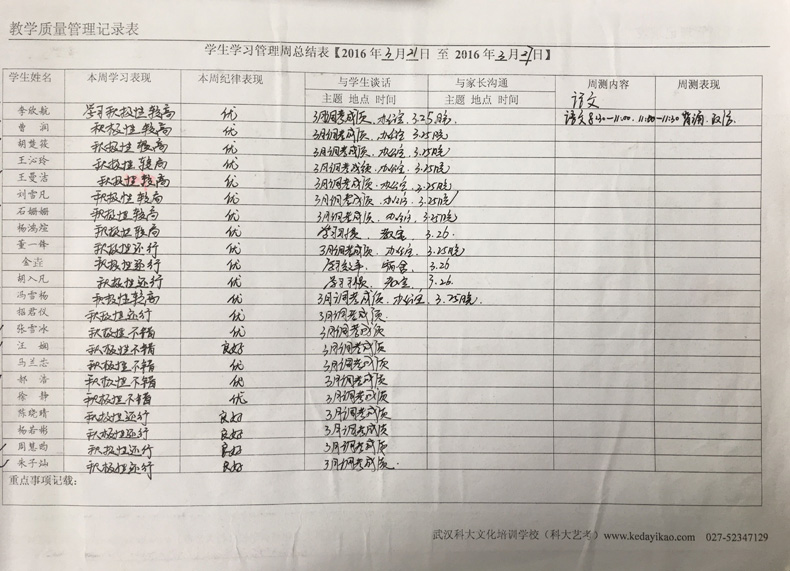 教学质量管理记录表
学生学习管理周总结表【2016年3月21日 至 2016年3月27日】
学生姓名 本周学习表现 本周纪律表现 与学生谈话 与家长沟通 周测内容 周测表现
主题 地点 时间 主题 地点 时间 语文
李欣航 学习积极性较高 优 3月调考成绩 办公室 3.25晚
曹润 积极性较高 优 3月调考成绩、办公室、3.25晚
胡楚薇 积极性较高 优 3月调考成绩、办公室、3.25晚
王沁玲 积极性较高 优 3月调考成绩、办公室、3.25晚
王曼洁 积极性较高 优 3月调考成绩、办公室、3.25晚
刘雪凡 积极性较高 优 3月调考成绩、办公室、3.25晚
石姗姗 积极性较高 优 3月调考成绩、办公室、3.25晚
杨鸿煊 积极性较高 优 教室、3.26
董一锋 积极性还行 优 3月调考成绩、办公室、3.25晚
金垚 积极性还行 优 学习效率、宿舍、3.26
胡入凡 积极性还行 优 教室、3.26
冯雪杨 积极性较高 优 3月调考成绩、办公室、3.25晚
招君仪 积极性还行 优 3月调考成绩
张雪冰 积极性不错 优 3月调考成绩
汪娴 积极性不错 良好 3月调考成绩
马兰杰 积极性不错 优 3月调考成绩
郝浩 积极性不错 优 3月调考成绩
徐静 积极性不错 优 3月调考成绩
陈晓晴 积极性还行 良好 3月调考成绩
杨若彬 积极性还行 良好 3月调考成绩
周慧昀 积极性还行 良好 3月调考成绩
朱子灿 积极性还行 良好 3月调考成绩
重点事项记载：
武汉科大文化培训学校（科大艺考）www.kedayikao.com 027-52347129